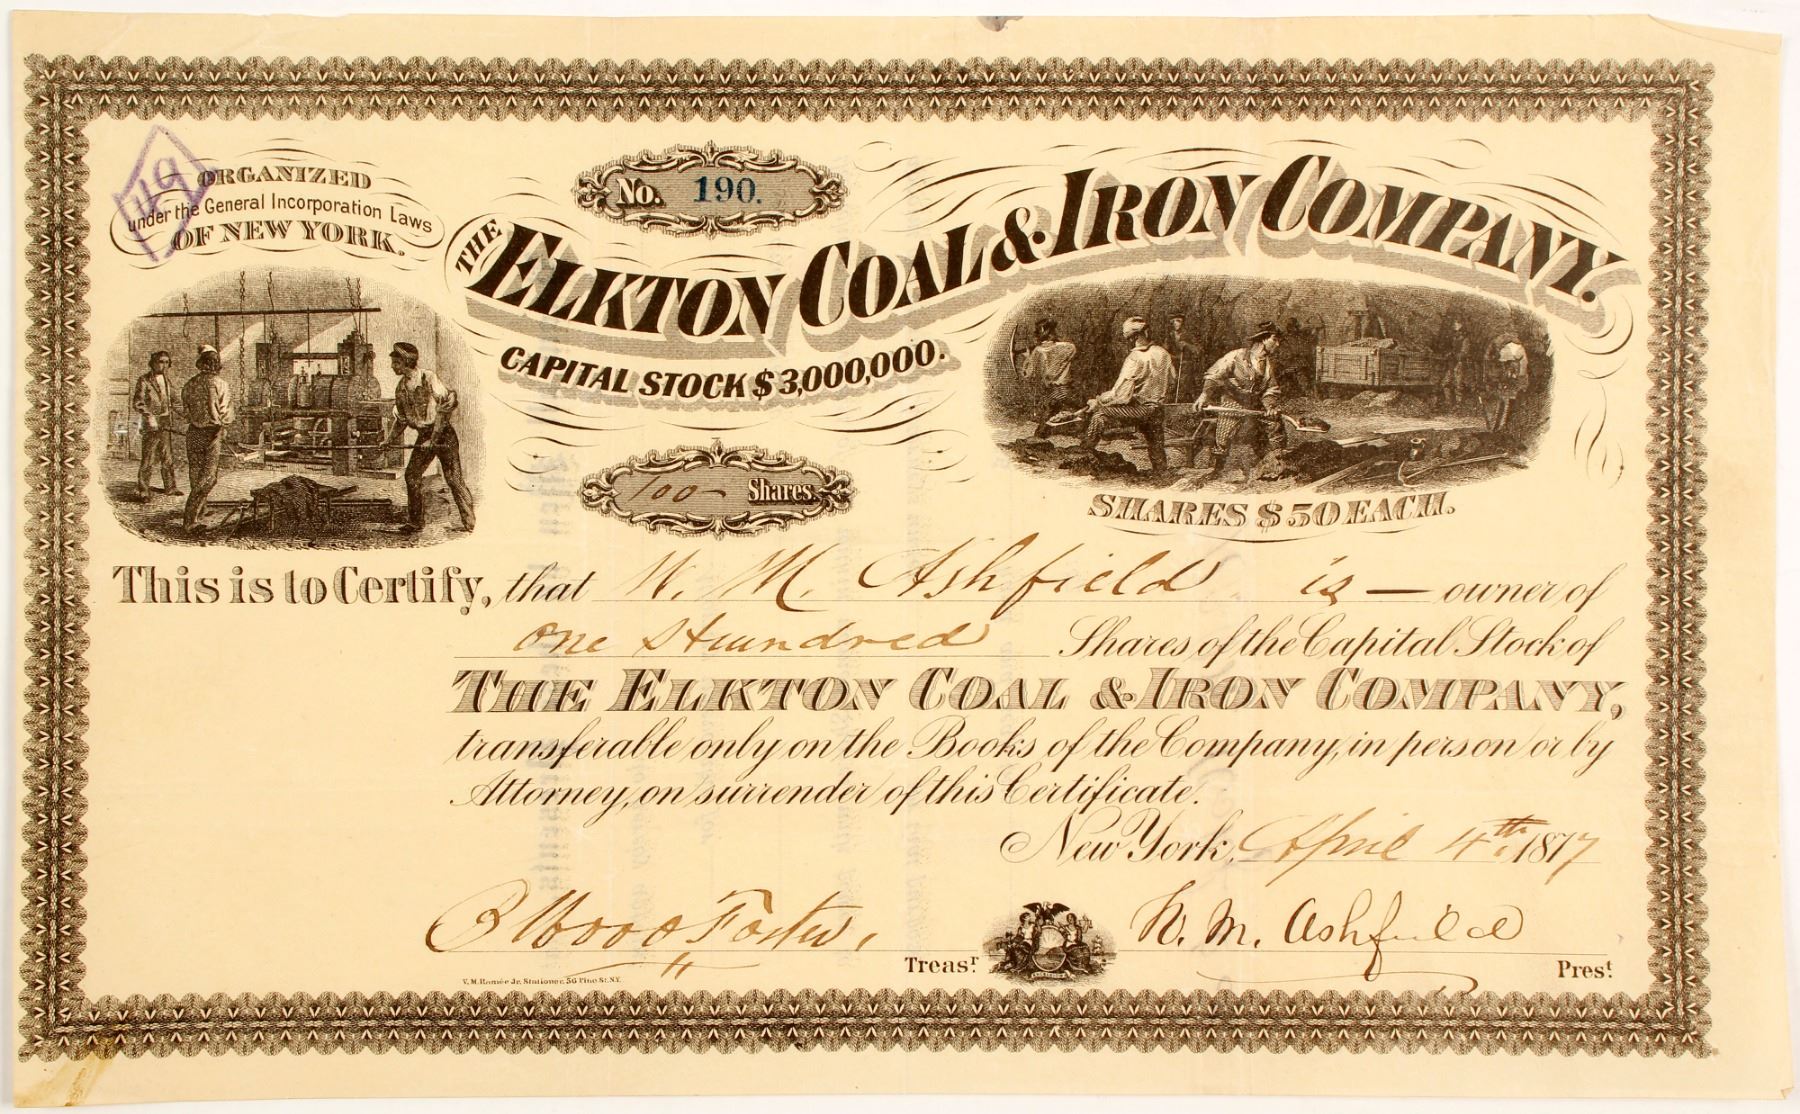 ORGANIZED
under the General Incorporation Laws
OF NEW YORK.
No. 190.
THE ELKTON COAL & IRON COMPANY.
CAPITAL STOCK $3,000,000.
100 Shares.
SHARES $50 EACH.
This is to Certify, that W. M. Ashfield is — owner of
One Hundred Shares of the Capital Stock of
THE ELKTON COAL & IRON COMPANY,
transferable only on the Books of the Company, in person or by
Attorney, on surrender of this Certificate.
New York, April 4th 1877
Foster, Treasr.
W. M. Ashfield Prest.
V. M. Romée Jr. Stationer. 56 Pine St. N.Y.